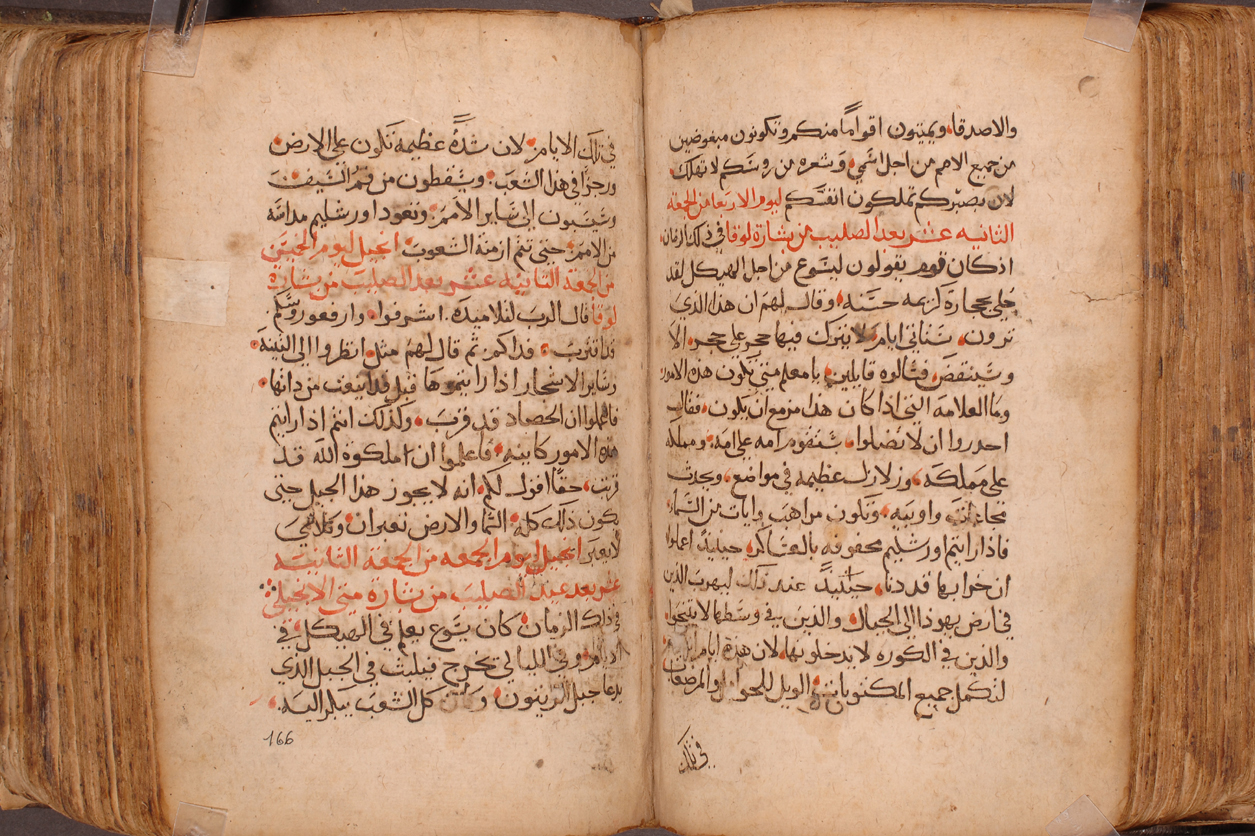 والاصدقا، ويميتون اقوامًا منكم وتكونون مبغوضين
من جميع الامم من اجل اسمي، وشعره من روسكم لا تهلك
لان بصبركم تملكون انفسكم ليوم الاربعا من الجمعه
الثانيه عشر بعد الصليب من بشارة لوقا في ذلك الزمان
اذ كان قوم يقولون ليسوع من اجل الهيكل لقد
حلي بحجارة كريمه حسنه، وقال لهم ان هذا الذي
ترون، ستاتي ايام لا يترك فيها حجر على حجر، الا
وسينقض، فسالوه قايلين، يا معلم متي يكون هذه الامور
وما العلامه التي اذا كان هذا مزمع ان يكون، فقال
احدروا ان لا تضلوا، ستقوم امه على امه، ومملكه
على مملكه، وزلازل عظيمه في مواضع، ويحدث
مجاعات واوبيه، وتكون مراهب وايات من السما،
فاذا رايتم اورشليم محفوفه بالعساكر، حينيدً اعلموا
ان خرابها قد دنا، حينيدً عند ذلك ليهرب الذين
في ارض يهوذا الي الجبال، والذين في وسطها لا يلتجوا
والذين في الكوره لا يدخلوبها، لان هذه ايام
لتكمل جميع المكتوبات، الويل للحوامل والمرضعات
في تلك
في تلك الايام، لان شدةً عظيمة تكون على الارض،
ورجزًا في هذا الشعب، ويسقطون من فم السيف
ويسبون الي ساير الامم، وتعود اورشليم مداسه
من الامم، حتي تتم ازمنة الشعوب، انجيل ليوم الخميس
من الجمعة الثانية عشر بعد الصليب من بشارة
لوقا قال الرب لتلاميده. اشرفوا، وارفعوا روسكم
قد اقترب، فداكم، ثم قال لهم مثل، انظروا الي التينه،
وساير الاشجار اذا رايتموها قبل قد اينعت من ذاتها،
فاعلموا ان الحصاد قد قرب، وكذلك انتم اذا رايتم
هذه الامور كاينه، فاعلموا ان ملكوة الله قد
قربت، حقًا اقول لكم، انه لا يجوز هذا الجيل حتي
يكون ذلك كله، السما والارض تعبران، وكلامي
لا يعبر، انجيل ليوم الجمعه من الجمعة الثانية
عشر بعد عيد الصليب من بشارة متي الانجيلي
في ذلك الزمان كان يسوع يعلم في الهيكل، في
الايام، وفي الليالي يخرج فيلبث في الجبل الذي
يدعا جبل الزيتون، وكان كل الشعب يبكر اليه،
166